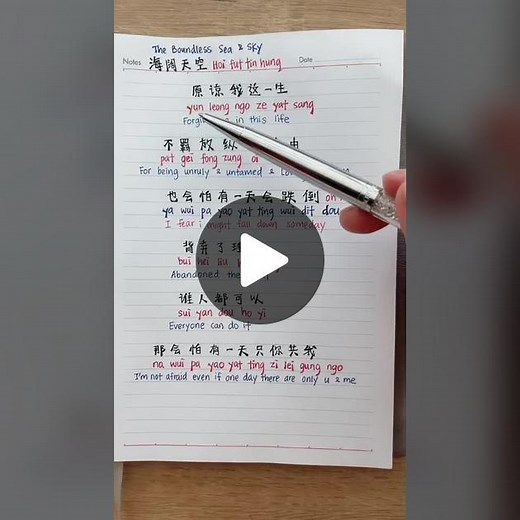 The Boundless Sea & Sky
Notes 海阔天空 Hoi fut tin hung Date
原谅我这一生
yun leong ngo ze yat sang
in this life
不羁放纵 由
pat gei fong zung oi
For being unruly & untamed &
也会怕有一天会跌倒 oh
ya wui pa yao yat ting wui dit dou
I fear i might fall down someday
背弃了
bui hei liu
Abandoned the
谁人都可以
sui yan dou ho yi
Everyone can do it
那会怕有一天只你共我
na wui pa yao yat ting zi lei gung ngo
I'm not afraid even if one day there are only u & me